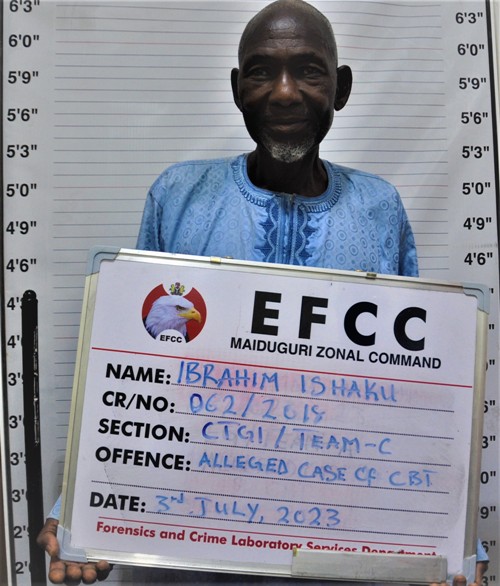 6'3" 6'3"
6'0" 6'0"
5'9" 5'9"
5'6" 5'6"
5'3" 5'3"
5'0" 5'0"
4'9" 4'9"
4'6" 4'6"
EFCC
EFCC
MAIDUGURI ZONAL COMMAND
NAME: IBRAHIM ISHAKU
CR/NO: 062/2018
SECTION: CTGI/TEAM-C
OFFENCE: ALLEGED CASE OF CBT
DATE: 3RD JULY, 2023
Forensics and Crime Laboratory Services Department